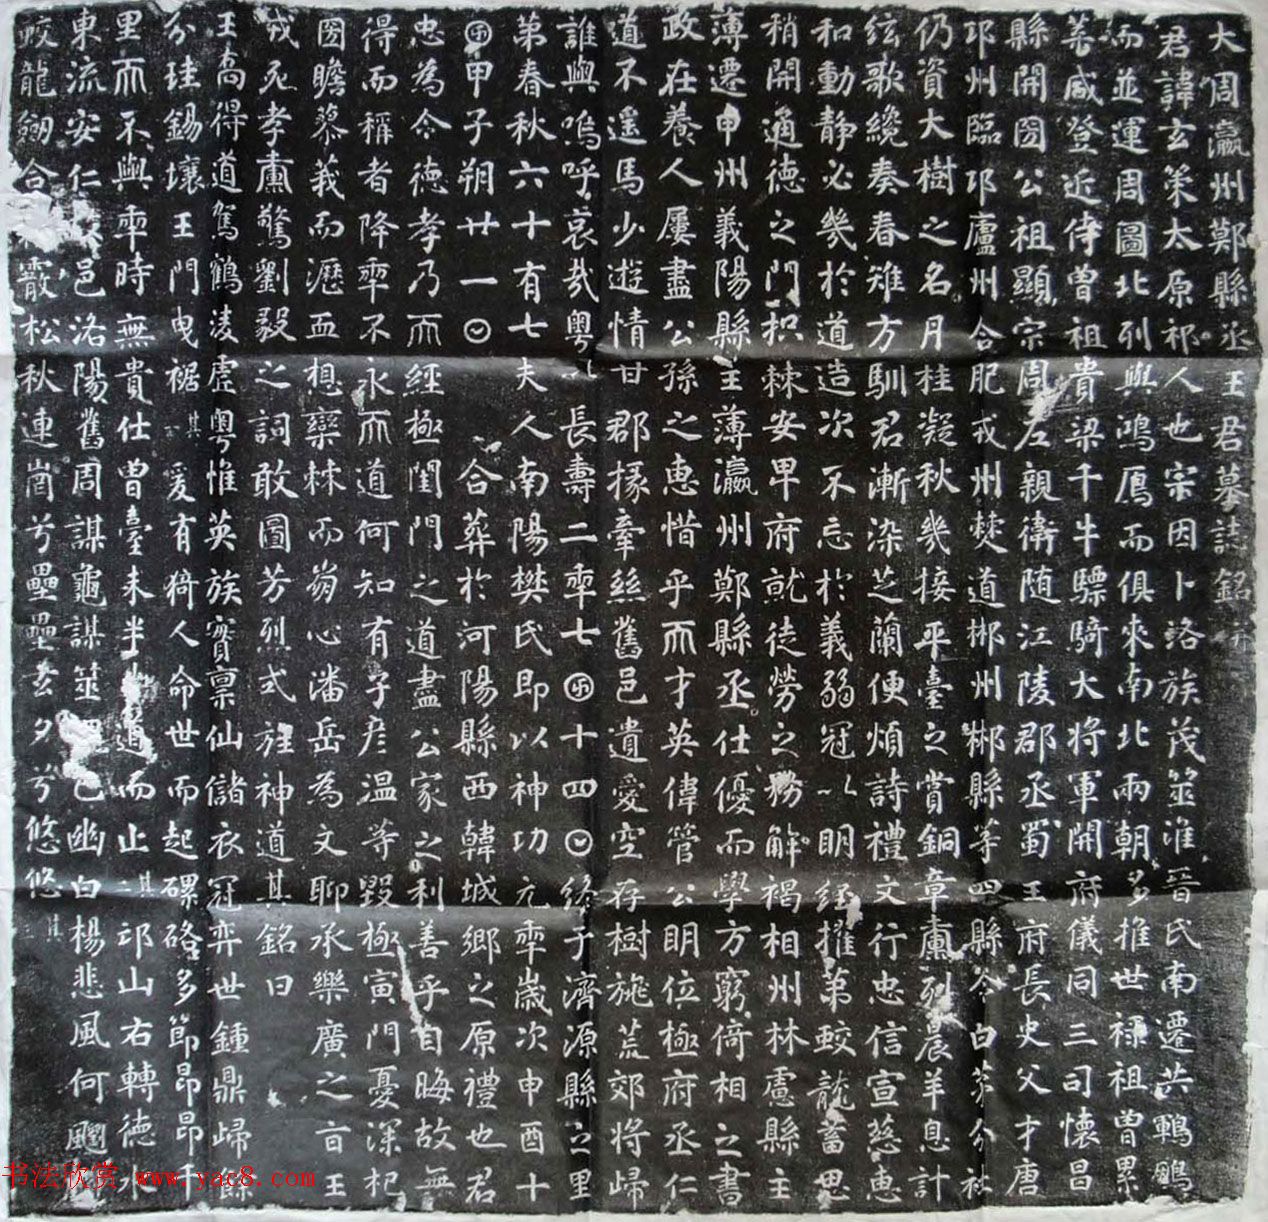 大周瀛州鄭縣丞王君墓誌銘并
君諱玄策太原祁人也宗因卜洛族茂筮淮晉氏南遷共鶤鵬
而並運周圖北列與鴻鴈而俱來南北兩朝多推世祿祖曾累
葉咸登近侍曾祖貴梁千牛驃騎大將軍開府儀同三司懷昌
縣開圀公祖顯宗周左親衛隨江陵郡丞蜀王府長史父才唐
邛州臨邛廬州合肥戎州僰道郴州郴縣等四縣令白茅分社
仍資大樹之名月桂凝秋幾接平臺之賞銅章肅列晨羊息計
絃歌纔奏春雉方馴君漸染芝蘭便煩詩禮文行忠信宣慈惠
和動靜必幾於道造次不忘於義弱冠以明經擢第蛟龍蓄思
稍開通德之門枳棘安卑府就徒勞之務解褐相州林慮縣主
薄遷申州義陽縣主薄瀛州鄭縣丞仕優而學方窮倚相之書
政在養人屢盡公孫之惠惜乎而才英偉管公明位極府丞仁
道不遥馬少遊情甘郡掾牽絲舊邑遺愛空存樹旐荒郊將歸
誰與嗚呼哀哉粵以長壽二𠡦七囝十四𡆠終于濟源縣之里
第春秋六十有七夫人南陽樊氏即以神功元𠡦歲次申酉十
囝甲子朔廿一𡆠合葬於河陽縣西韓城鄉之原禮也君
忠為令德孝乃而經極閨門之道盡公家之利善乎自晦故無
得而稱者降𠡦不永而道何知有子彦温等毀極寅門憂深杞
圀瞻蓼莪而瀝血想欒棘而崩心潘岳為文聊承樂廣之旨王
戎死孝肅驚劉毅之詞敢圖芳烈式旌神道其銘曰
王高得道駕鶴淩虛粵惟英族寔稟仙儲衣冠弈世鍾鼎歸餘
分珪錫壤王門曳裾其一爰有猗人命世而起磥硌多節昂昂千
里而不與𠡦時無貴仕曾臺未半道而止其二邙山右轉德水
東流安仁邑洛陽舊周謀龜謀筮已幽白楊悲風何飂
蛟龍劒合霰松秋連崗兮壘壘去夕兮悠悠其
书法欣赏 www.yac8.com